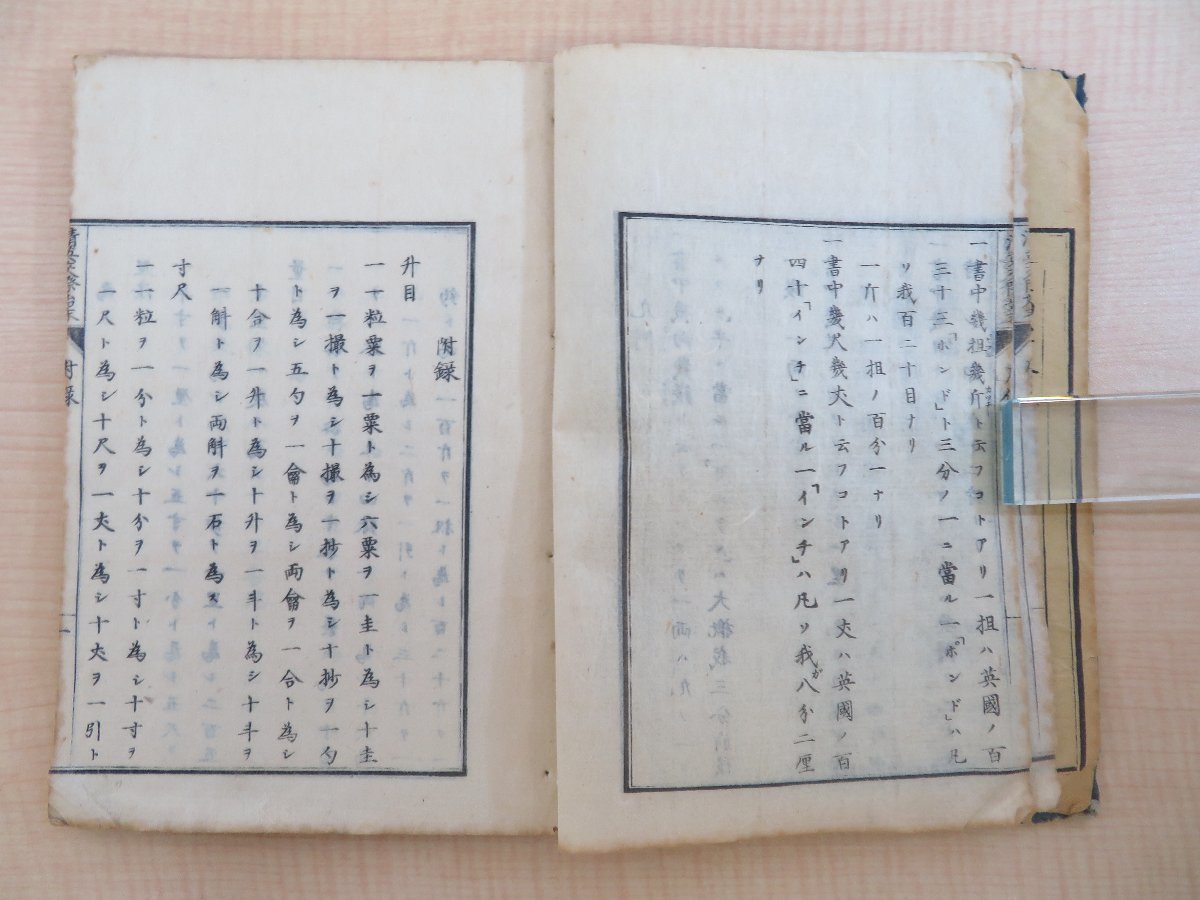 一書中幾担幾斤ト云フコトアリ一担ハ英國ノ百
三十三「ポンド」ト三分ノ一ニ當ル一「ポンド」ハ凡
ソ我百二十目ナリ
一斤ハ一担ノ百分一ナリ
一書中幾尺幾丈ト云フコトアリ一丈ハ英國ノ百
四十「インチ」ニ當ル一「インチ」ハ凡ソ我ガ八分二厘
ナリ
附錄
升目
一一粒粟ヲ一粟ト為シ六粟ヲ一圭ト為シ十圭
ヲ一撮ト為シ十撮ヲ一抄ト為シ十抄ヲ一勺
ト為シ五勺ヲ一龠ト為シ両龠ヲ一合ト為シ
十合ヲ一升ト為シ十升ヲ一斗ト為シ十斗ヲ
一斛ト為シ両斛ヲ一石ト為ス
寸尺
一一粒ヲ一分ト為シ十分ヲ一寸ト為シ十寸ヲ
一尺ト為シ十尺ヲ一丈ト為シ十丈ヲ一引ト
附錄
一